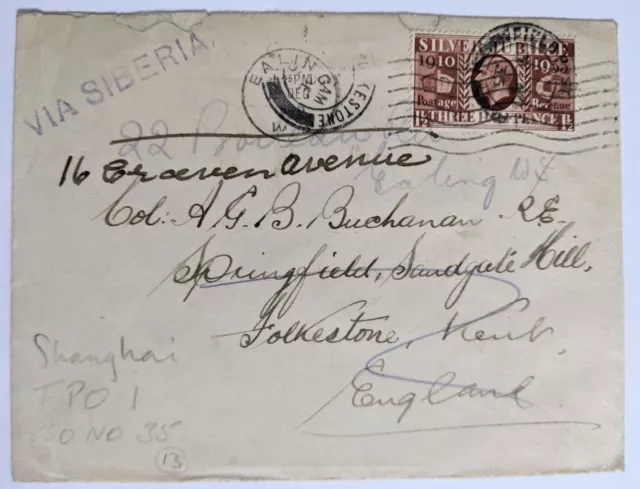 VIA SIBERIA.
EALING
W
DEC
KESTONE
SILVER JUBILEE
1910 1935
Postage Revenue
1½ THREE HALFPENCE 1½
22
16 Craven avenue
Ealing W5
Col: A.G.B. Buchanan R.E.
Springfield, Sandgate Hill,
Folkestone, Kent,
England
Shanghai
FPO 1
NO 35
13